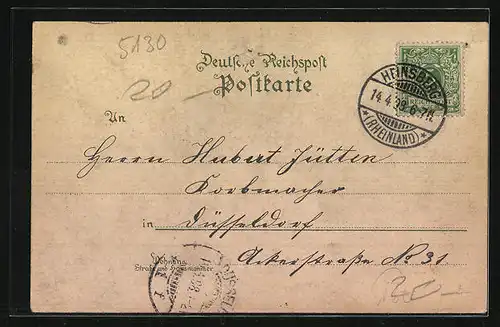 5130
20
Deutsche Reichspost
Postkarte
HEINSBERG
14.4.98.6-7N.
*(RHEINLAND)*
An
Herrn Hubert Jütten
Korbmacher
in Düsseldorf
Wohnung
Straße und Hausnummer
Ackerstraße No 31